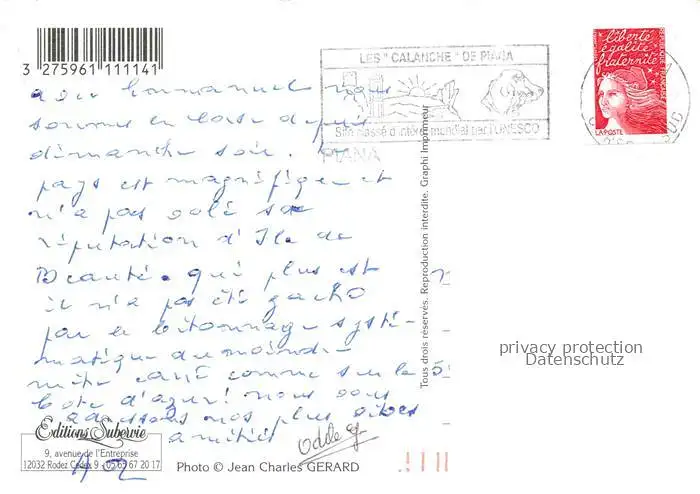 3 275961 111141
LES "CALANCHE" DE PIANA
Site classé d'intérêt mondial par l'UNESCO
PIANA
liberté
égalité
fraternité
RÉPUBLIQUE FRANÇAISE
LA POSTE
Emmanuel nous
sommes en Corse depuis
dimanche soir. Le
pays est magnifique et
n'a pas volé sa
réputation d'Ile de
Beauté. qui plus est
il n'a pas été gaché
par le bétonnage systé-
matique du moindre
mètre carré comme sur la
Cote d'azur! nous vous
adressons nos plus vives
amitiés
Odile
Tous droits réservés. Reproduction interdite. Graphi Imprimeur
Editions Subervie
9, avenue de l'Entreprise
12032 Rodez Cedex 9 - 05 65 67 20 17
Photo © Jean Charles GERARD
privacy protection
Datenschutz